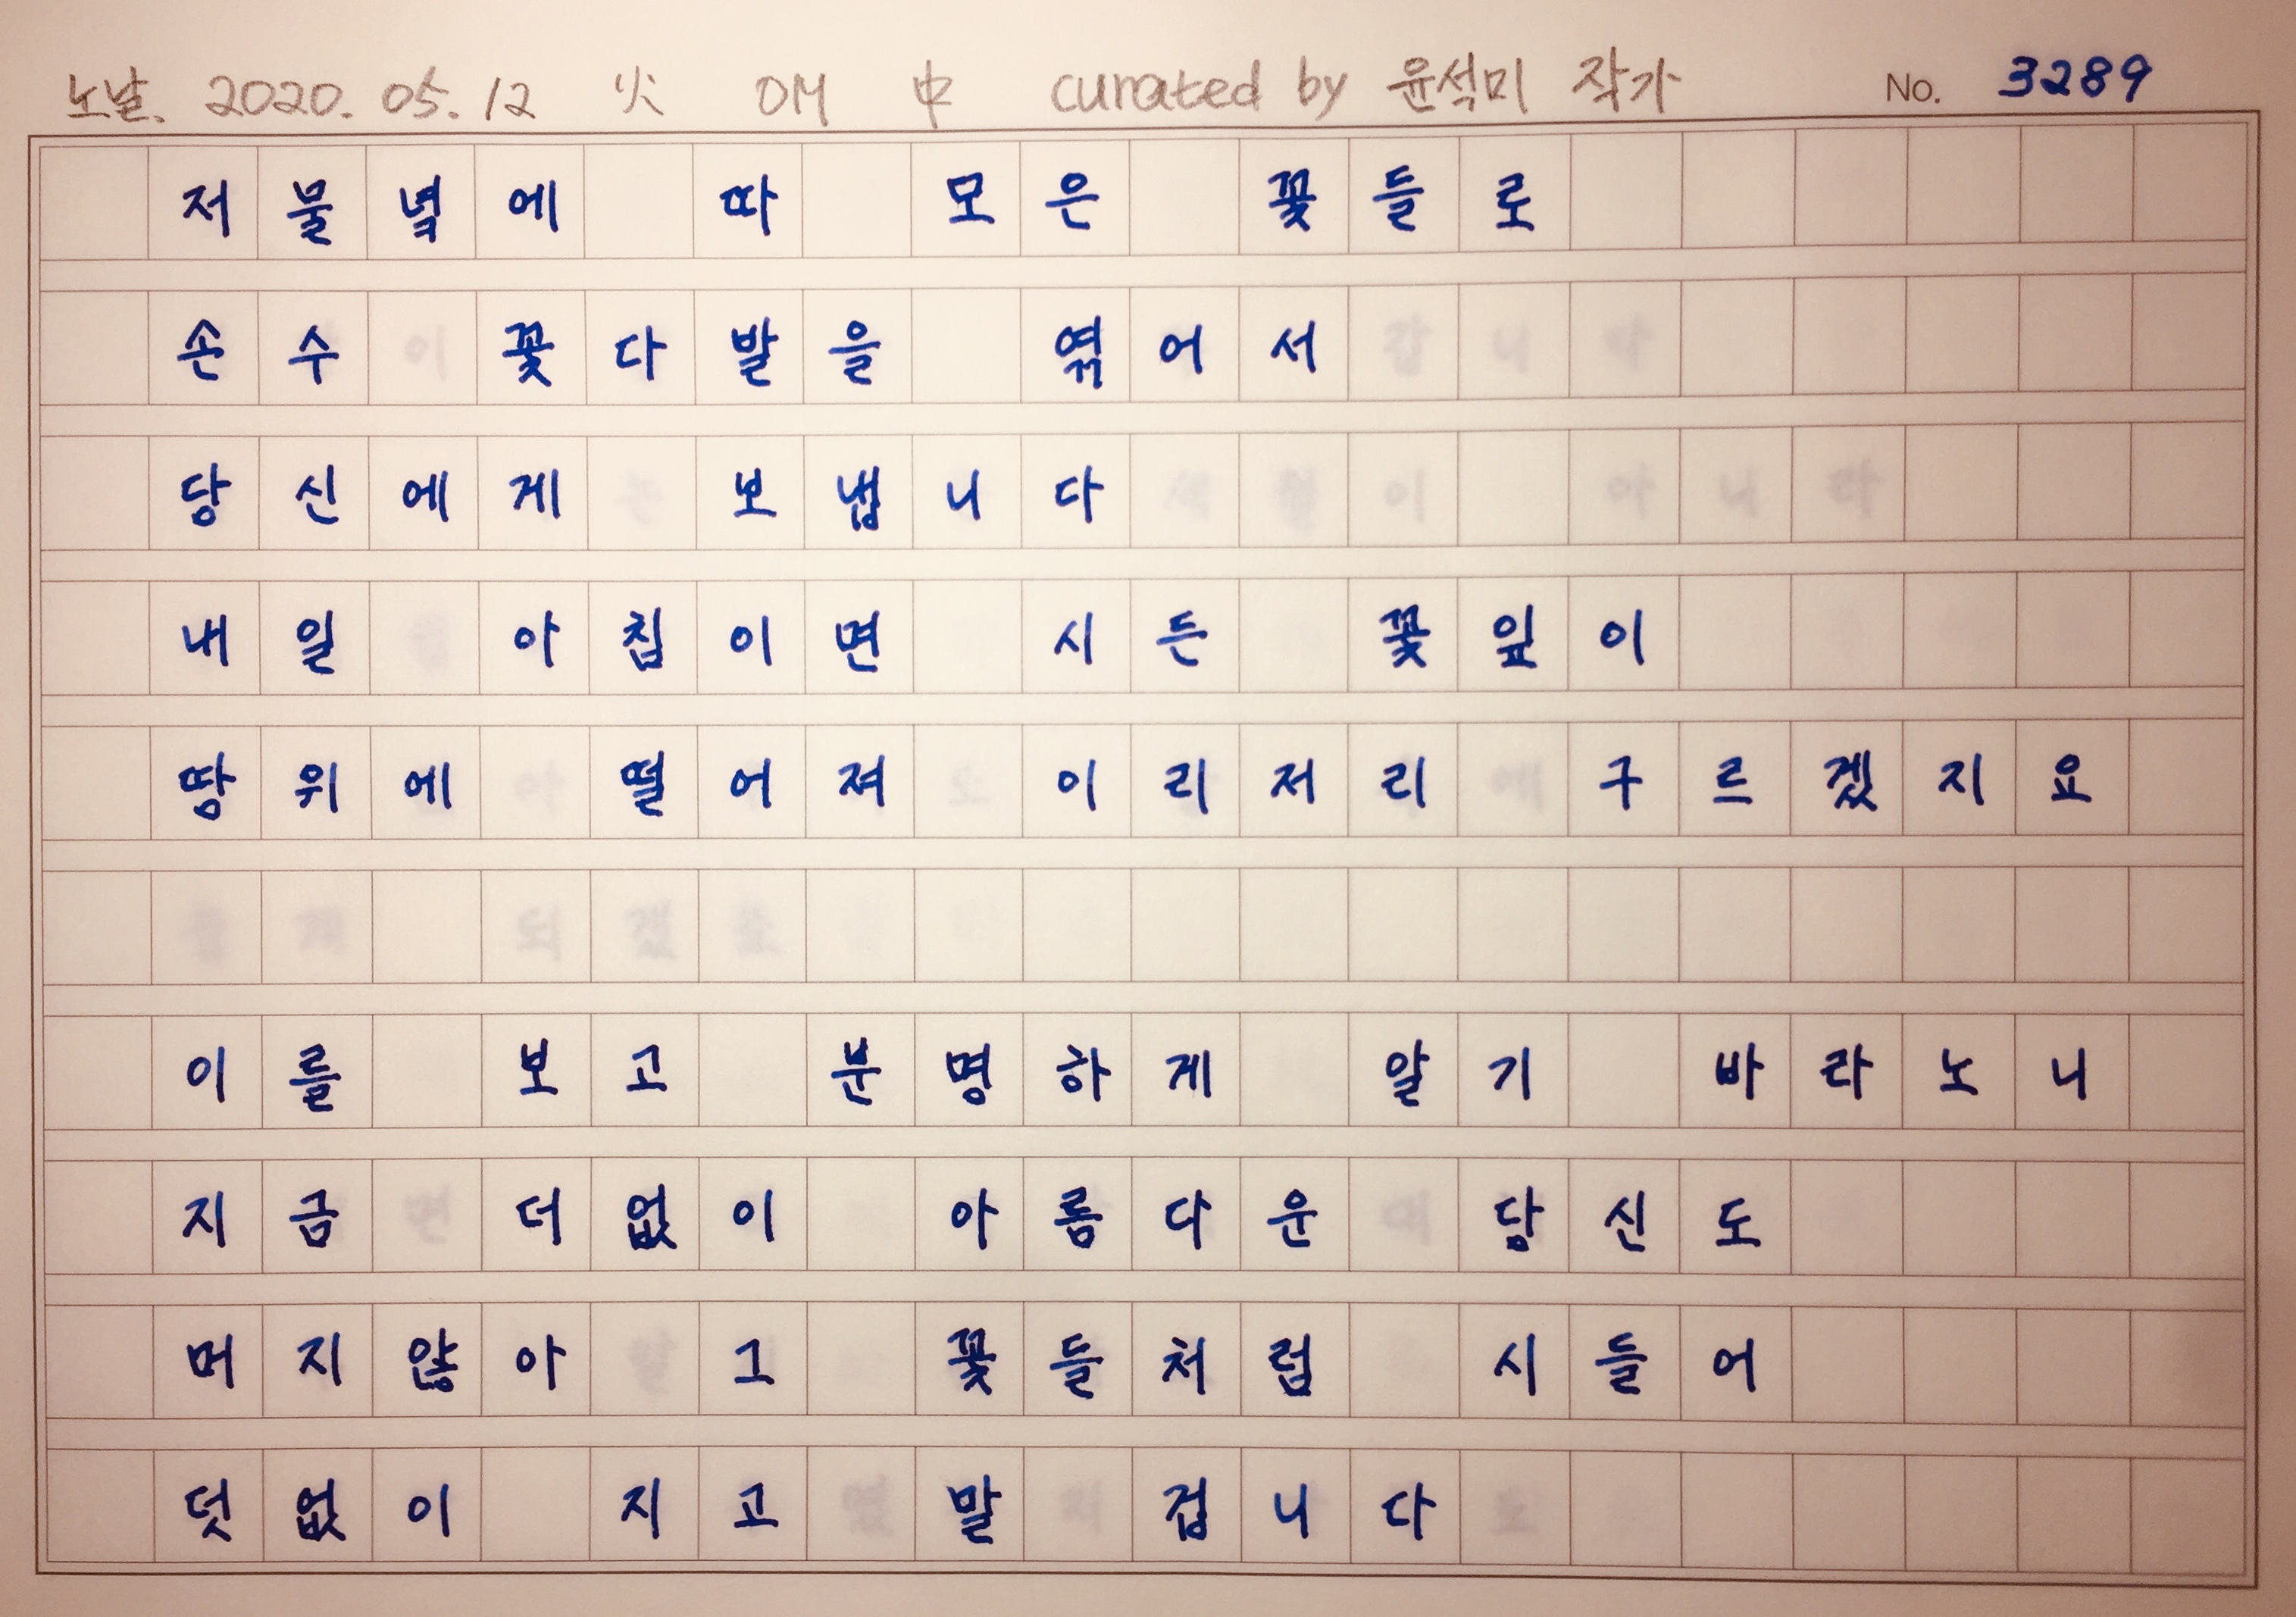 노날. 2020. 05. 12 火 OM 中 curated by 윤석미 작가 No. 3289
저물녘에 따 모은 꽃들로
손수 꽃다발을 엮어서
당신에게 보냅니다
내일 아칩이면 시든 꽃잎이
땅위에 떨어져 이리저리 구르겠지요
이를 보고 분명하게 알기 바라노니
지금 더없이 아름다운 당신도
머지않아 그 꽃들처럼 시들어
덧없이 지고 말 겁니다